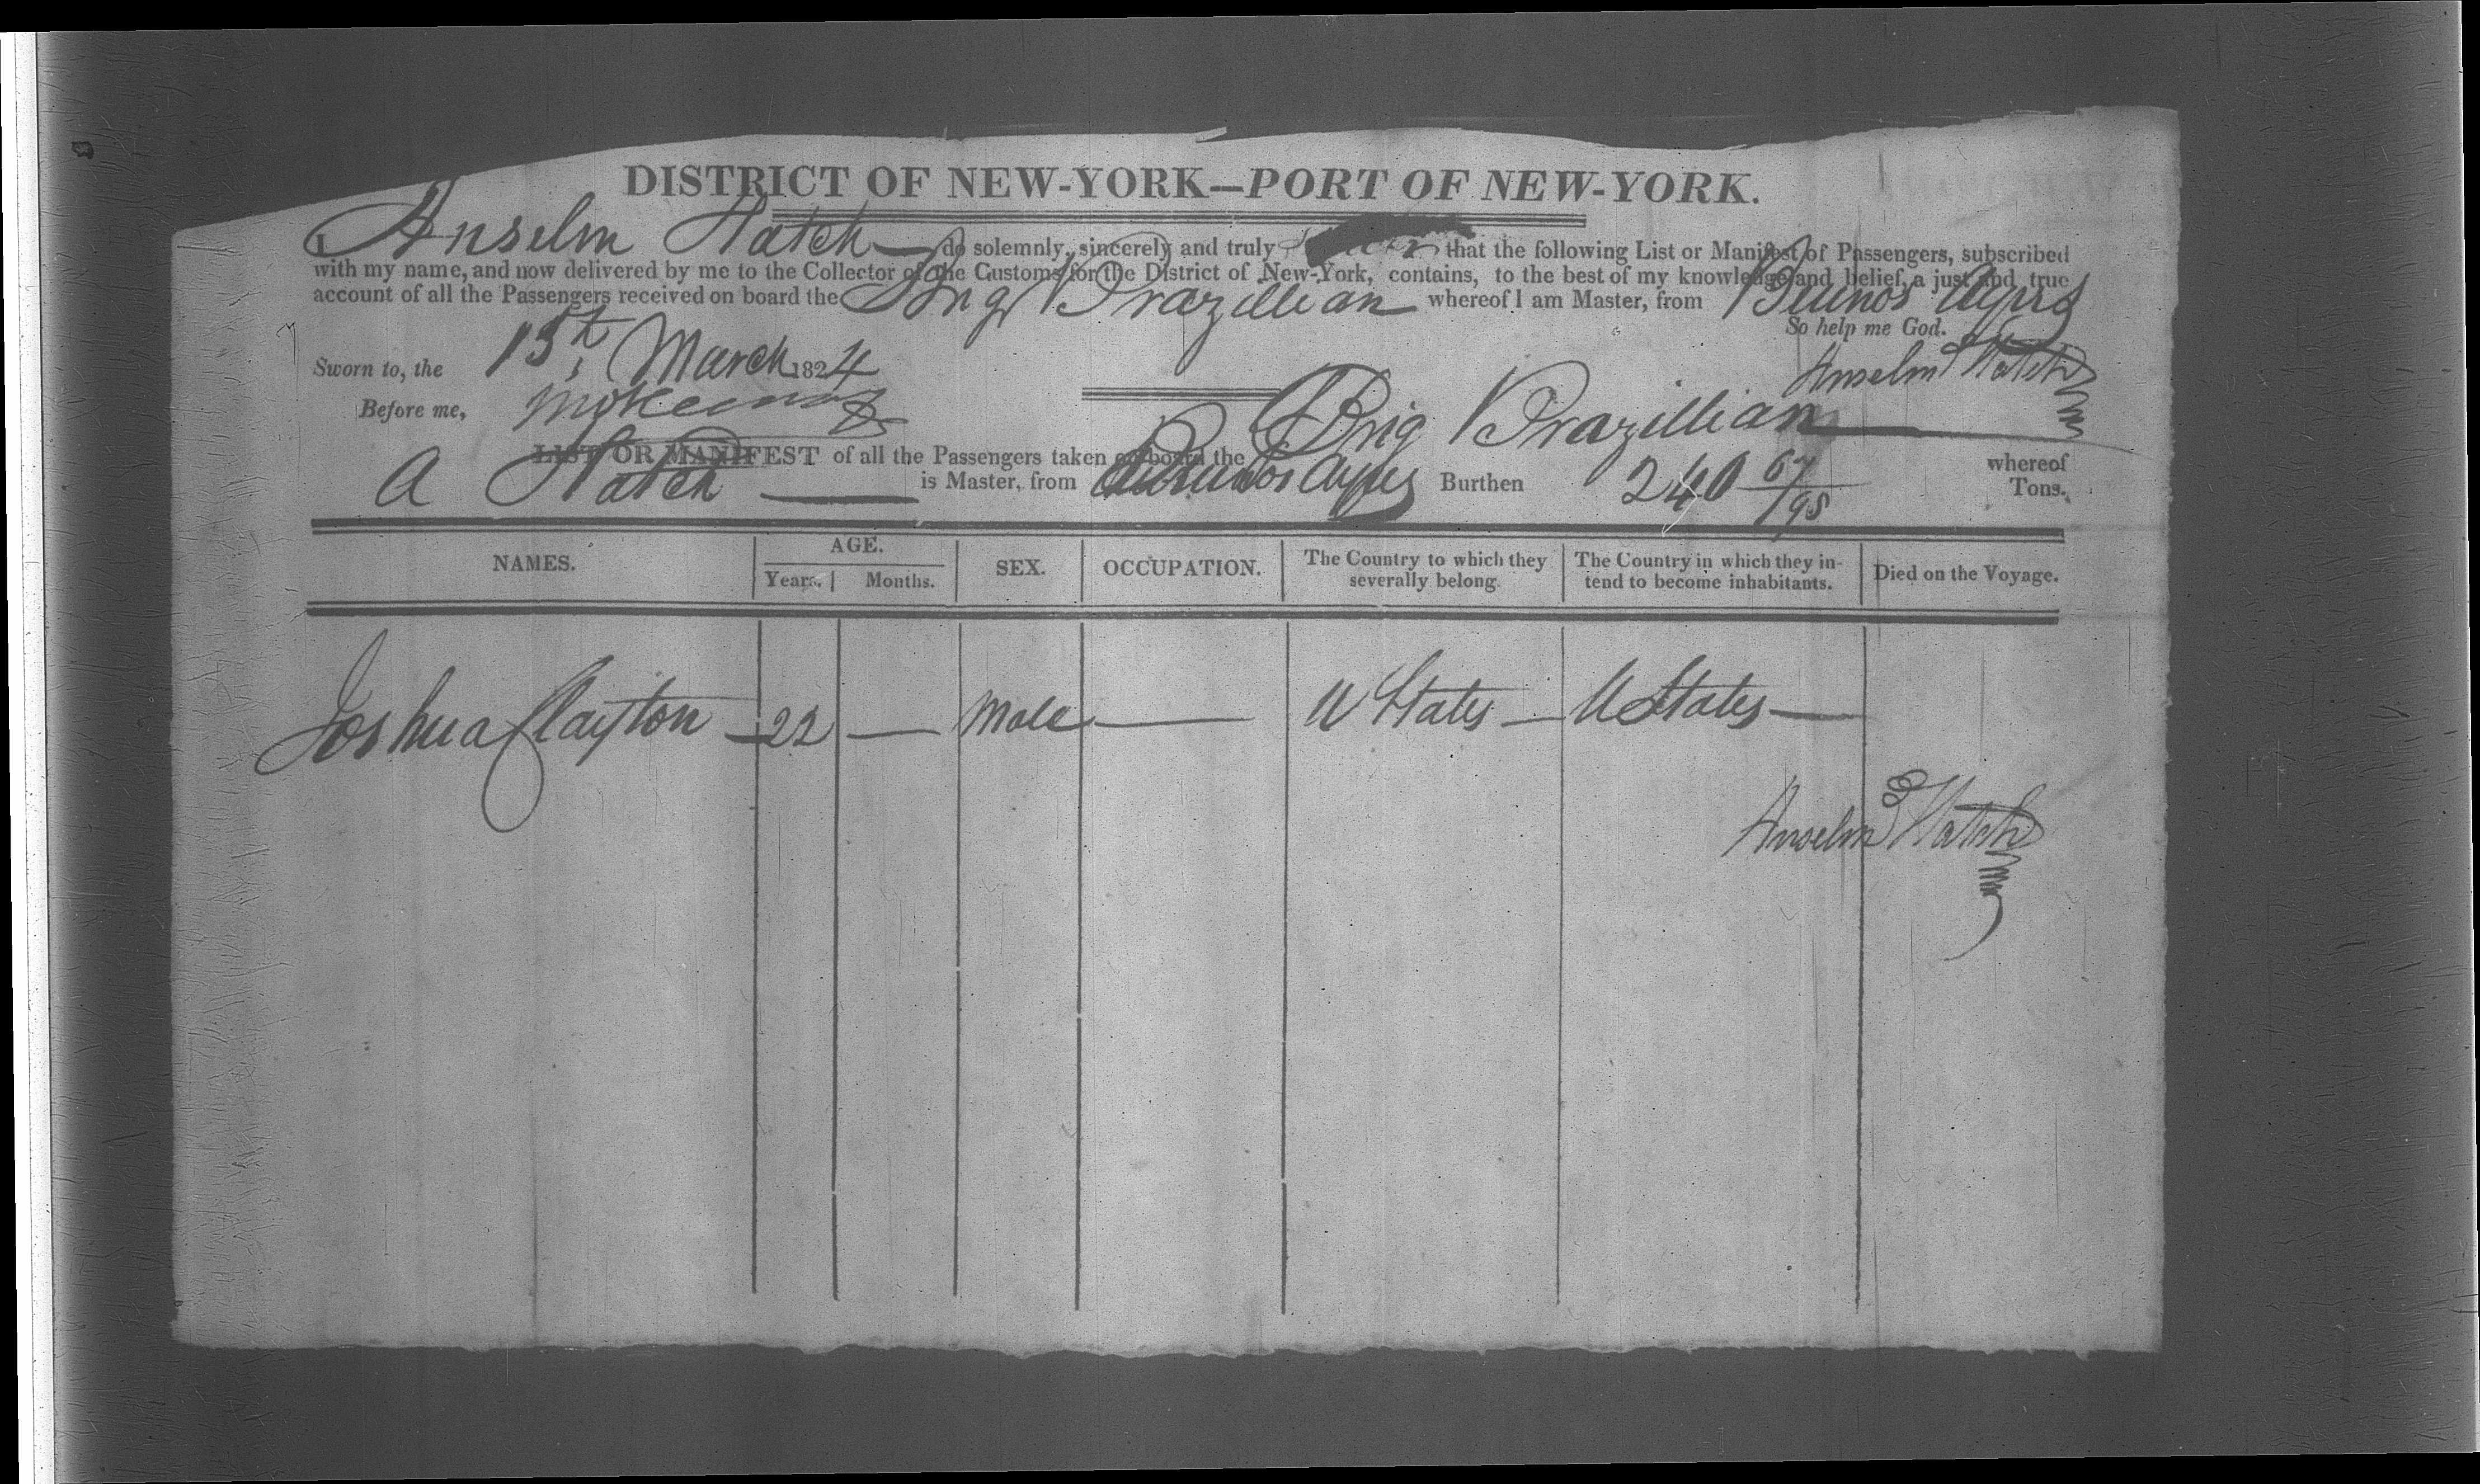 DISTRICT OF NEW-YORK—PORT OF NEW-YORK.
I Anselm Hatch do solemnly, sincerely and truly that the following List or Manifest of Passengers, subscribed
with my name, and now delivered by me to the Collector of the Customs for the District of New-York, contains, to the best of my knowledge and belief, a just and true
account of all the Passengers received on board the Brig Brazillian whereof I am Master, from Buenos Ayres
So help me God.
Sworn to, the 15th March 1824
Anselm Hatch
Before me,
LIST OR MANIFEST of all the Passengers taken on board the Brig Brazillian whereof
A Hatch is Master, from Buenos Ayres Burthen 240 67/95 Tons.
NAMES. AGE. Years. Months. SEX. OCCUPATION. The Country to which they severally belong. The Country in which they intend to become inhabitants. Died on the Voyage.
Joshua Clayton — 22 — Male — U States — U States —
Anselm Hatch